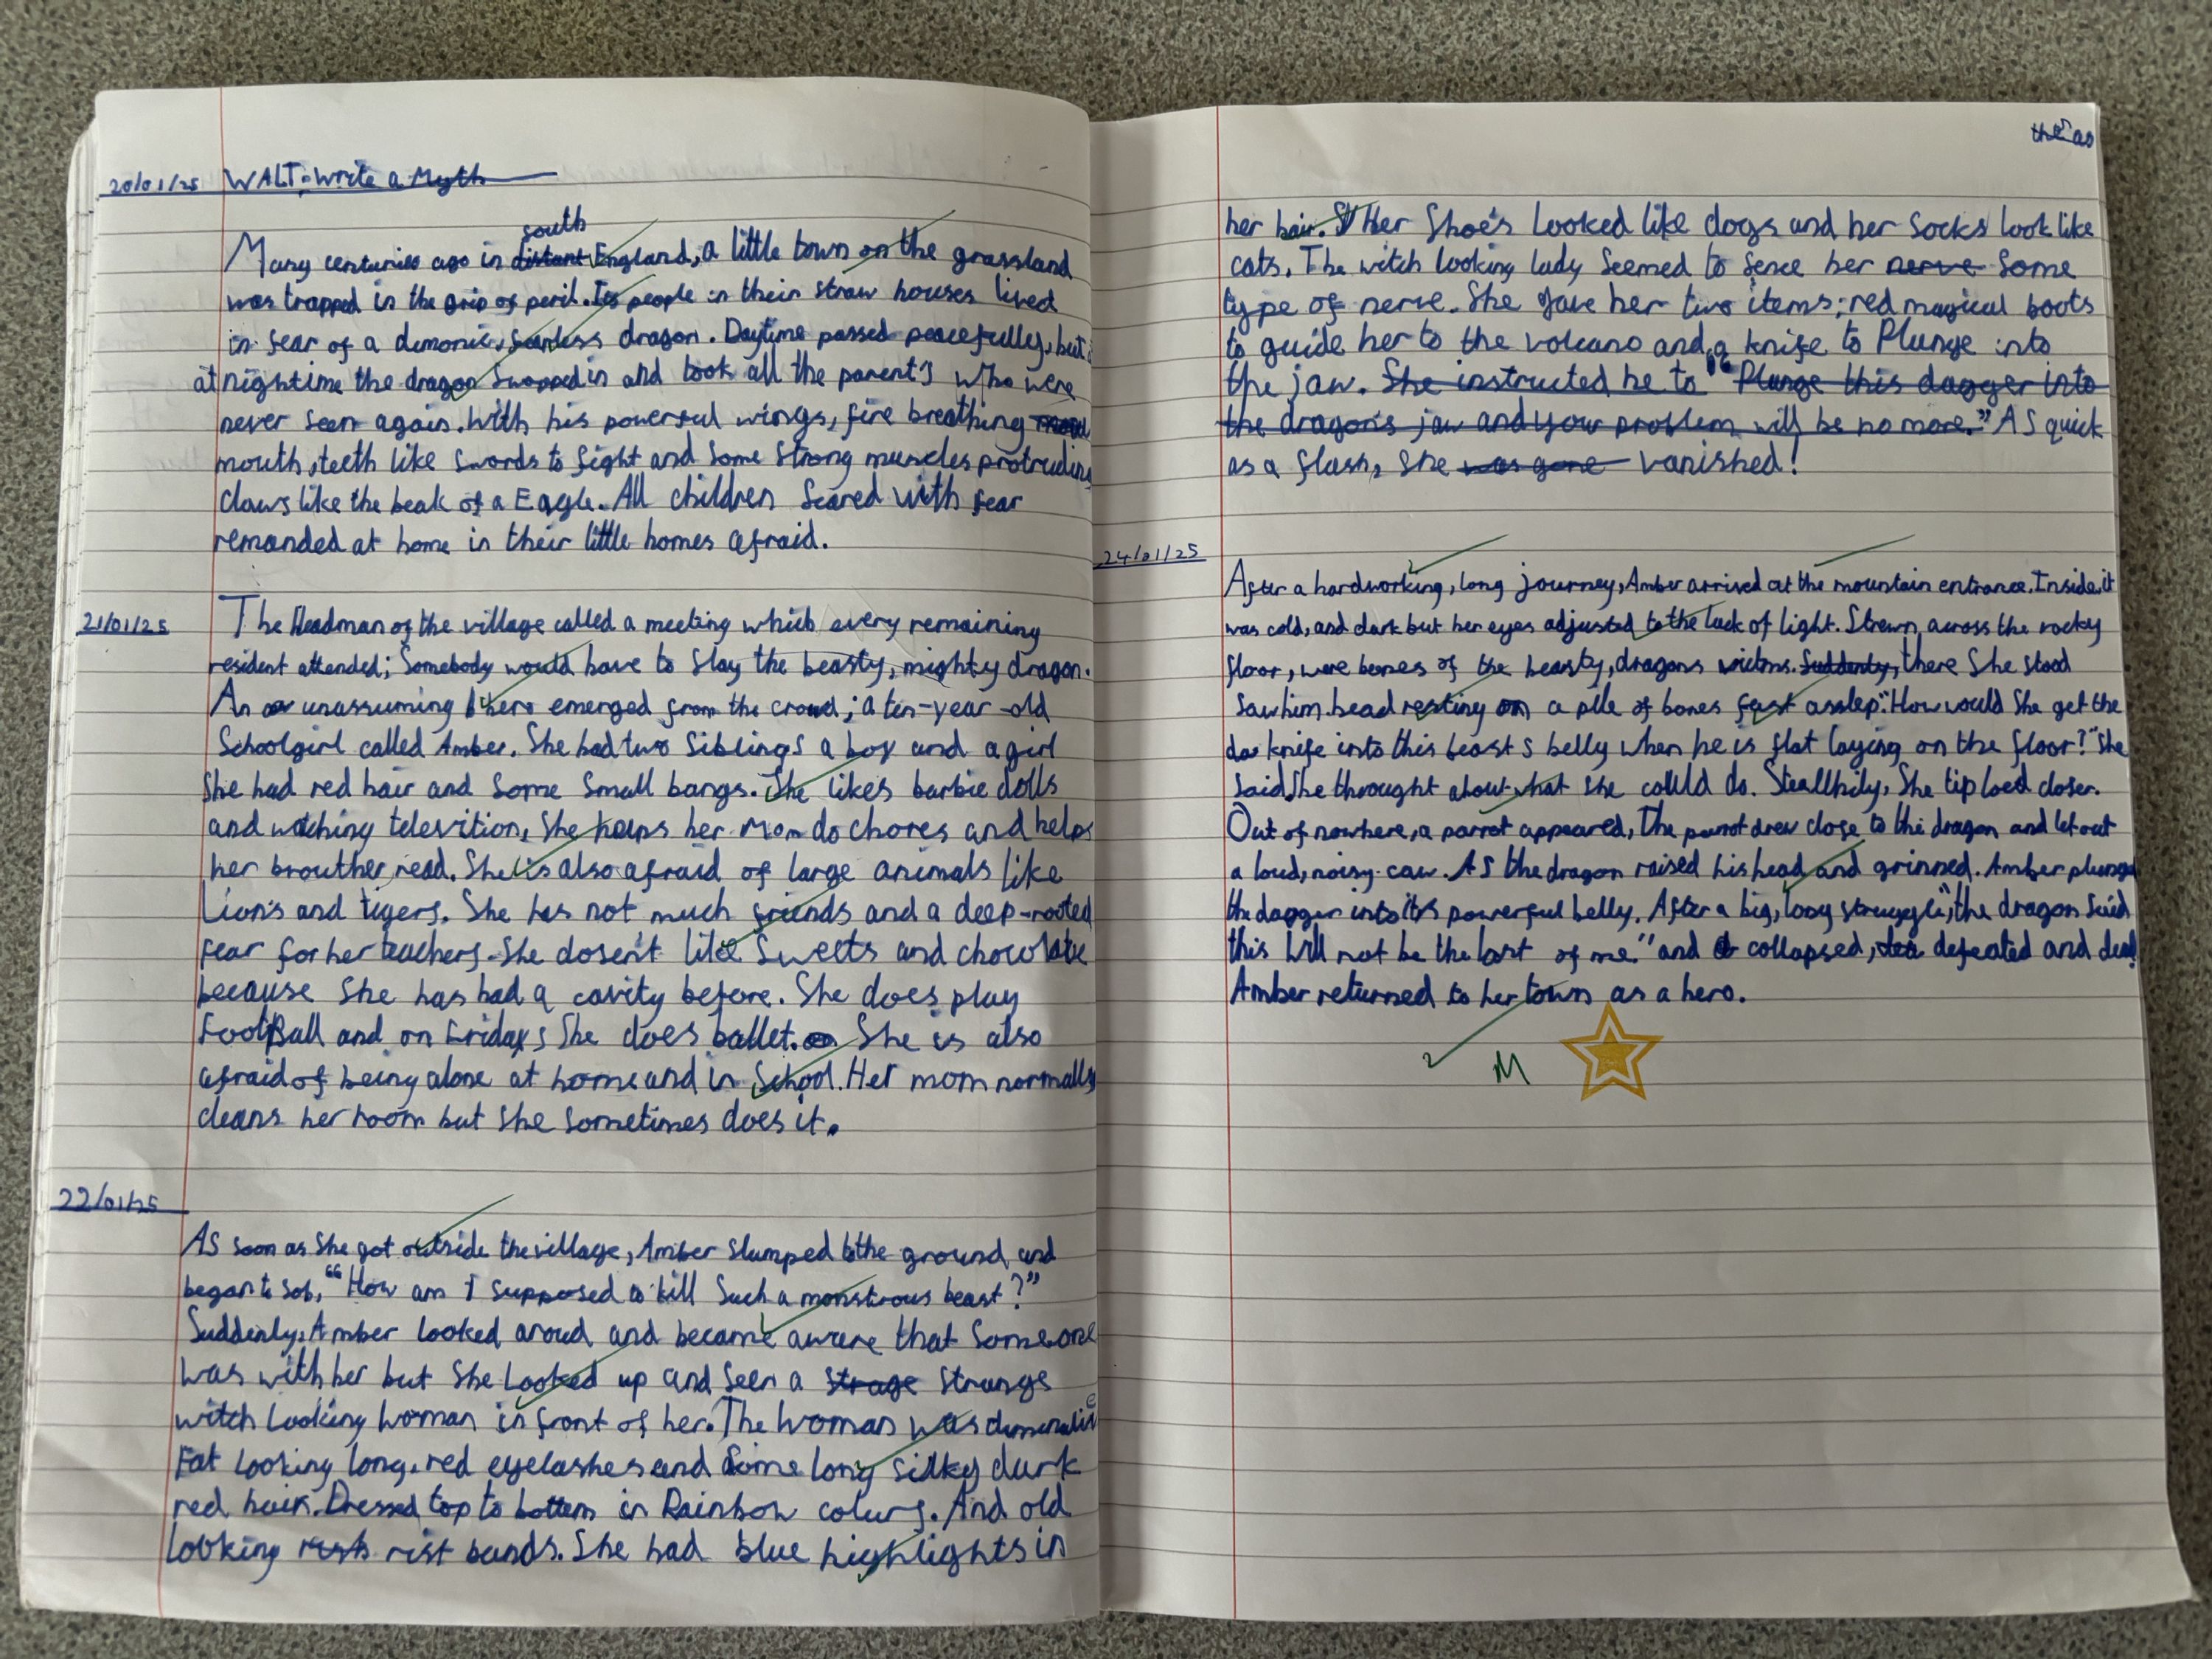 20/01/25 WALT: Write a Myth
south
Many centuries ago in distant England, a little town on the grassland
was trapped in the grip of peril. Its people in their straw houses lived
in fear of a demonic, fearless dragon. Daytime passed peacefully, but
at nightime the dragon swopped in and took all the parents who were
never seen again. With his powerful wings, fire breathing
mouth, teeth like swords to fight and some strong muscles protruding
claws like the beak of a Eagle. All children scared with fear
remanded at home in their little homes afraid.
21/01/25 The Headman of the village called a meeting which every remaining
resident attended; Somebody would have to slay the beasty, mighty dragon.
An unassuming hero emerged from the crowd; a ten-year-old
Schoolgirl called Amber. She had two siblings a boy and a girl
She had red hair and some small bangs. She likes barbie dolls
and watching televition, She helps her Mom do chores and helps
her brouther read. She is also afraid of large animals like
Lions and tigers. She has not much friends and a deep-rooted
fear for her teachers. She dosen't like Sweets and chocolate
because She has had a cavity before. She does play
FootBall and on Fridays She does ballet. She is also
afraid of being alone at home and in School. Her mom normally
cleans her room but She sometimes does it.
22/01/25
As soon as She got outside the village, Amber slumped to the ground and
began to sob, "How am I supposed to kill Such a monstrous beast?"
Suddenly, Amber looked aroud and became aware that someone
was with her but She Looked up and seen a strage strange
witch Looking woman in front of her. The woman was
Fat Looking long, red eyelashes and Some long silky dark
red hair. Dressed top to bottom in Rainbow colurs. And old
looking rist bands. She had blue highlights in
her hair. Her Shoe's Looked like dogs and her Socks Look like
cats. The witch looking lady Seemed to sence her nerve some
type of nerve. She gave her two items; red magical boots
to guide her to the volcano and a knife to Plunge into
the jaw. She instructed he to "Plunge this dagger into
the dragon's jaw and your problem will be no more." As quick
as a flash, she was gone vanished!
24/01/25
After a hardworking, long journey, Amber arrived at the mountain entrance. Inside, it
was cold, and dark but her eyes adjusted to the lack of light. Strewn across the rocky
floor, were bones of the beasty, dragons victims. Suddenly, there She stood
Saw him head resting on a pile of bones fast asslep. "How would She get the
knife into this beast s belly when he is flat laying on the floor?" She
said. She throught about what she could do. Stealthily, She tiptoed closer.
Out of nowhere, a parrot appeared, The parrot drew close to the dragon and let out
a loud, noisy caw. As the dragon raised his head and grinned. Amber plunged
the dagger into its powerful belly. After a big, long struggle, "the dragon said
this Will not be the last of me" and collapsed, defeated and dead
Amber returned to her town as a hero.
M